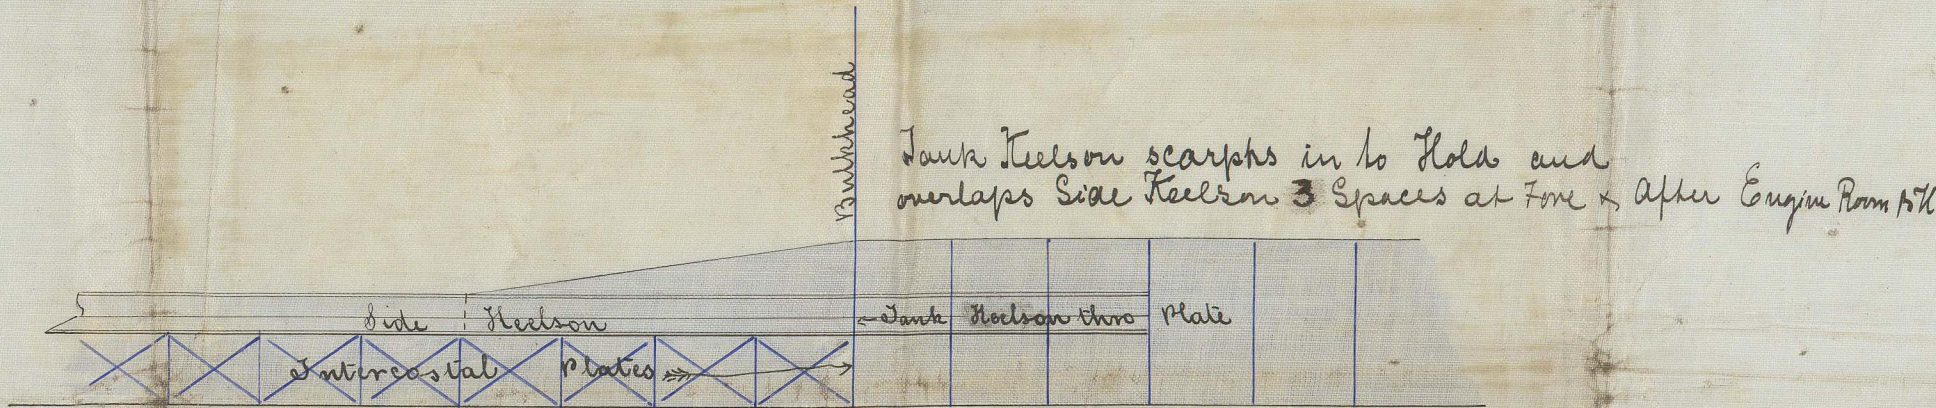 Bulkhead
Tank Keelson scarphs in to Hold and
overlaps Side Keelson 3 Spaces at Fore & After Engine Room BH
Side Keelson
Tank Keelson thro Plate
Intercostal Plates